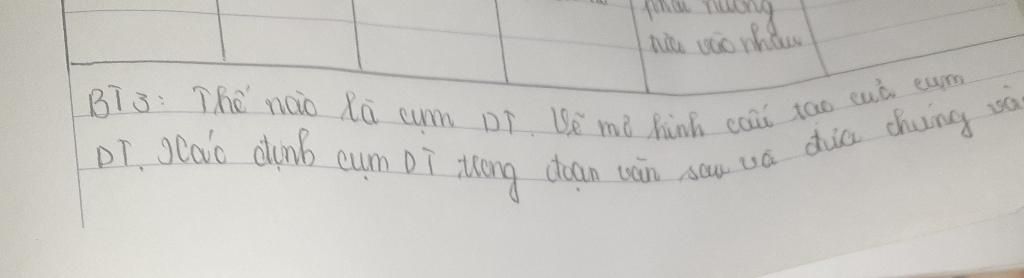 phải hướng
nữa vào nhau
BT3: Thế nào là cụm DT. Vẽ mô hình cấu tạo của cụm
DT. Xác định cụm DT trong đoạn văn sau và đưa chúng vào